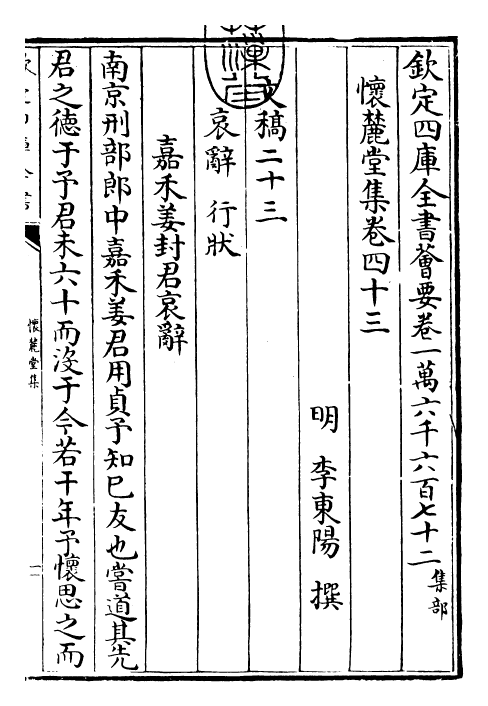 欽定四庫全書薈要卷一萬六千六百七十二 集部
懷麓堂集卷四十三
明 李東陽 撰
文稿二十三
哀辭 行狀
嘉禾姜封君哀辭
南京刑部郎中嘉禾姜君用貞予知已友也嘗道其先
君之德于予君未六十而沒于今若干年予懷思之而
懷麓堂集